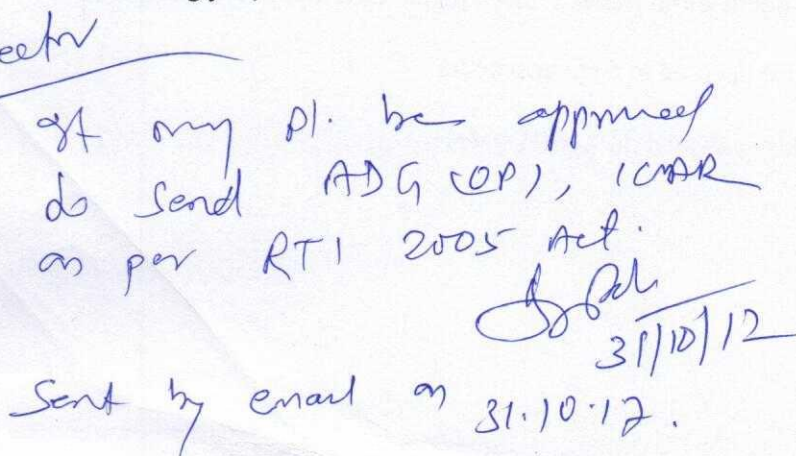 It may pl. be approved
to send ADG (OP), ICAR
as per RTI 2005 Act.
31/10/12
Sent by email on 31.10.12.